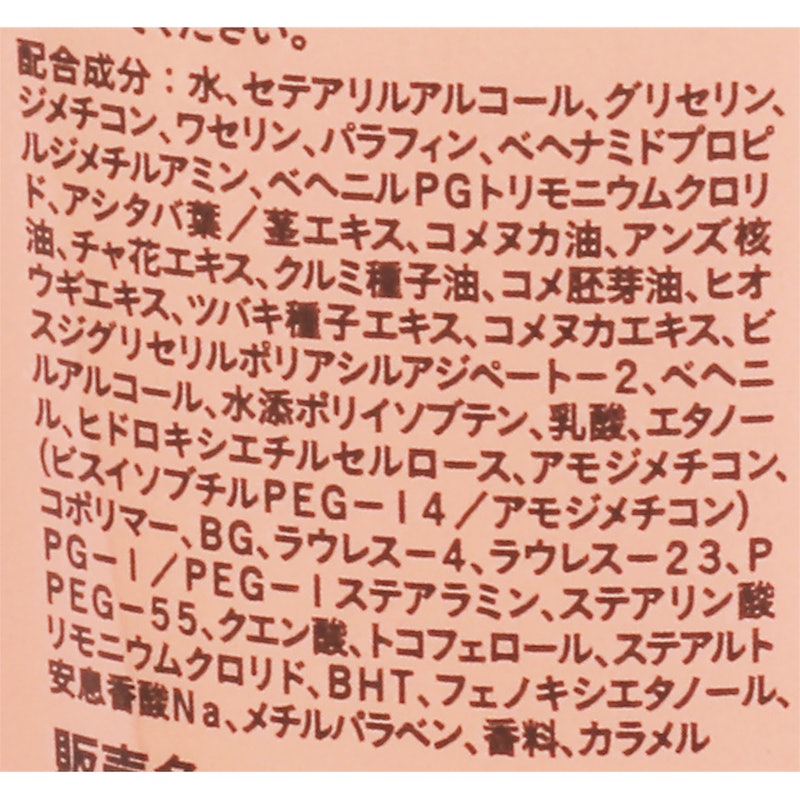 ください。
配合成分：水、セテアリルアルコール、グリセリン、
ジメチコン、ワセリン、パラフィン、ベヘナミドプロピ
ルジメチルアミン、ベヘニルPGトリモニウムクロリ
ド、アシタバ葉／茎エキス、コメヌカ油、アンズ核
油、チャ花エキス、クルミ種子油、コメ胚芽油、ヒオ
ウギエキス、ツバキ種子エキス、コメヌカエキス、ビ
スジグリセリルポリアシルアジペート－2、ベヘニ
ルアルコール、水添ポリイソブテン、乳酸、エタノー
ル、ヒドロキシエチルセルロース、アモジメチコン、
（ビスイソブチルPEG－14／アモジメチコン）
コポリマー、BG、ラウレス－4、ラウレス－23、P
PG－1／PEG－1ステアラミン、ステアリン酸
PEG－55、クエン酸、トコフェロール、ステアルト
リモニウムクロリド、BHT、フェノキシエタノール、
安息香酸Na、メチルパラベン、香料、カラメル
販売名